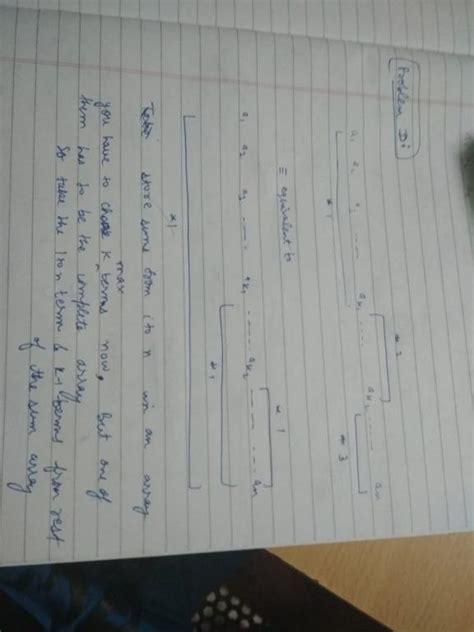 Problem D:
a₁ a₂ a₃ ---- aₖ₁ ---- aₖ₂ ---- aₙ
*1 *2 *3
≡ equivalent to
a₁ a₂ a₃ ---- aₖ₁ ---- aₖ₂ ---- aₙ
*1
*1
*1
store sums from i to n in an array
max
you have to choose k terms now, But one of
them has to be the complete array
So take the 1 to n term & k-1 terms from rest
of the sum array